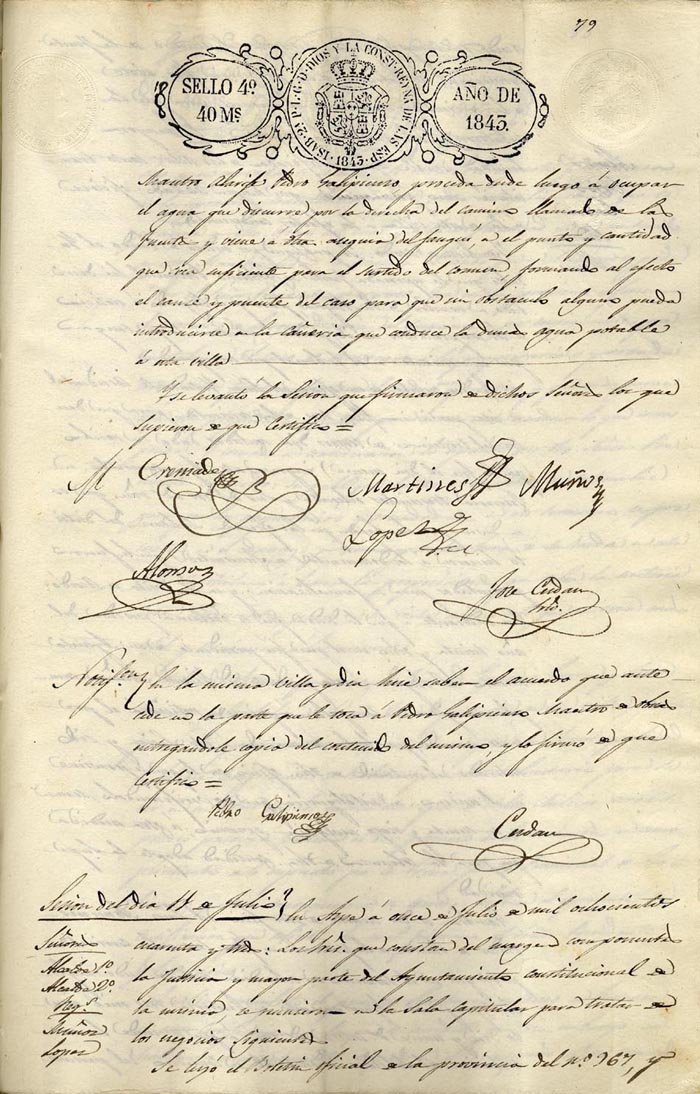 79
SELLO 4º
40 Mˢ
ISAB. 2ª P. L. G. D. DIOS Y LA CONST. REYNA DE LAS ESP. 1843.
AÑO DE
1843.
Maestro Alarife Pedro Galipienzo proceda desde luego á ocupar
el agua que discurre por la derecha del camino llamado de la
fuente y viene á dha. asequia del fangui, en el punto y cantidad
que crea suficiente para el surtido del comun, formando al efecto
el cauce y puente del caso para que sin obstaculo alguno pueda
introducirse en la Cañeria que conduce la demas agua potable
á esta villa
Y se levantó la Sesion que firmaron de dichos Señores los que
supieron de que Certifico =
Cremades
Martines
Muños
Lopez
Alonso
Jose Cerdan
Srio.
Notifon. En la misma villa y dia hice saber el acuerdo que ante
cede en la parte que le toca á Pedro Galipienzo Maestro de obras
entregandole copia del contenido del mismo y lo firmó de que
Certifico =
Pedro Galipienzo
Cerdan
Sesion del dia 11 de Julio
En Aspe á once de Julio de mil ochocientos
Señores
cuarenta y tres: Los Sres. que constan del margen componentes
Alcalde 1º
la Justicia y mayor parte del Ayuntamiento constitucional de
Alcalde 2º
la misma se reunieron en la Sala capitular para tratar de
Regs.
Muñoz
los negocios siguientes
Lopez
Se leyó el Boletin oficial de la provincia del nº 967, y